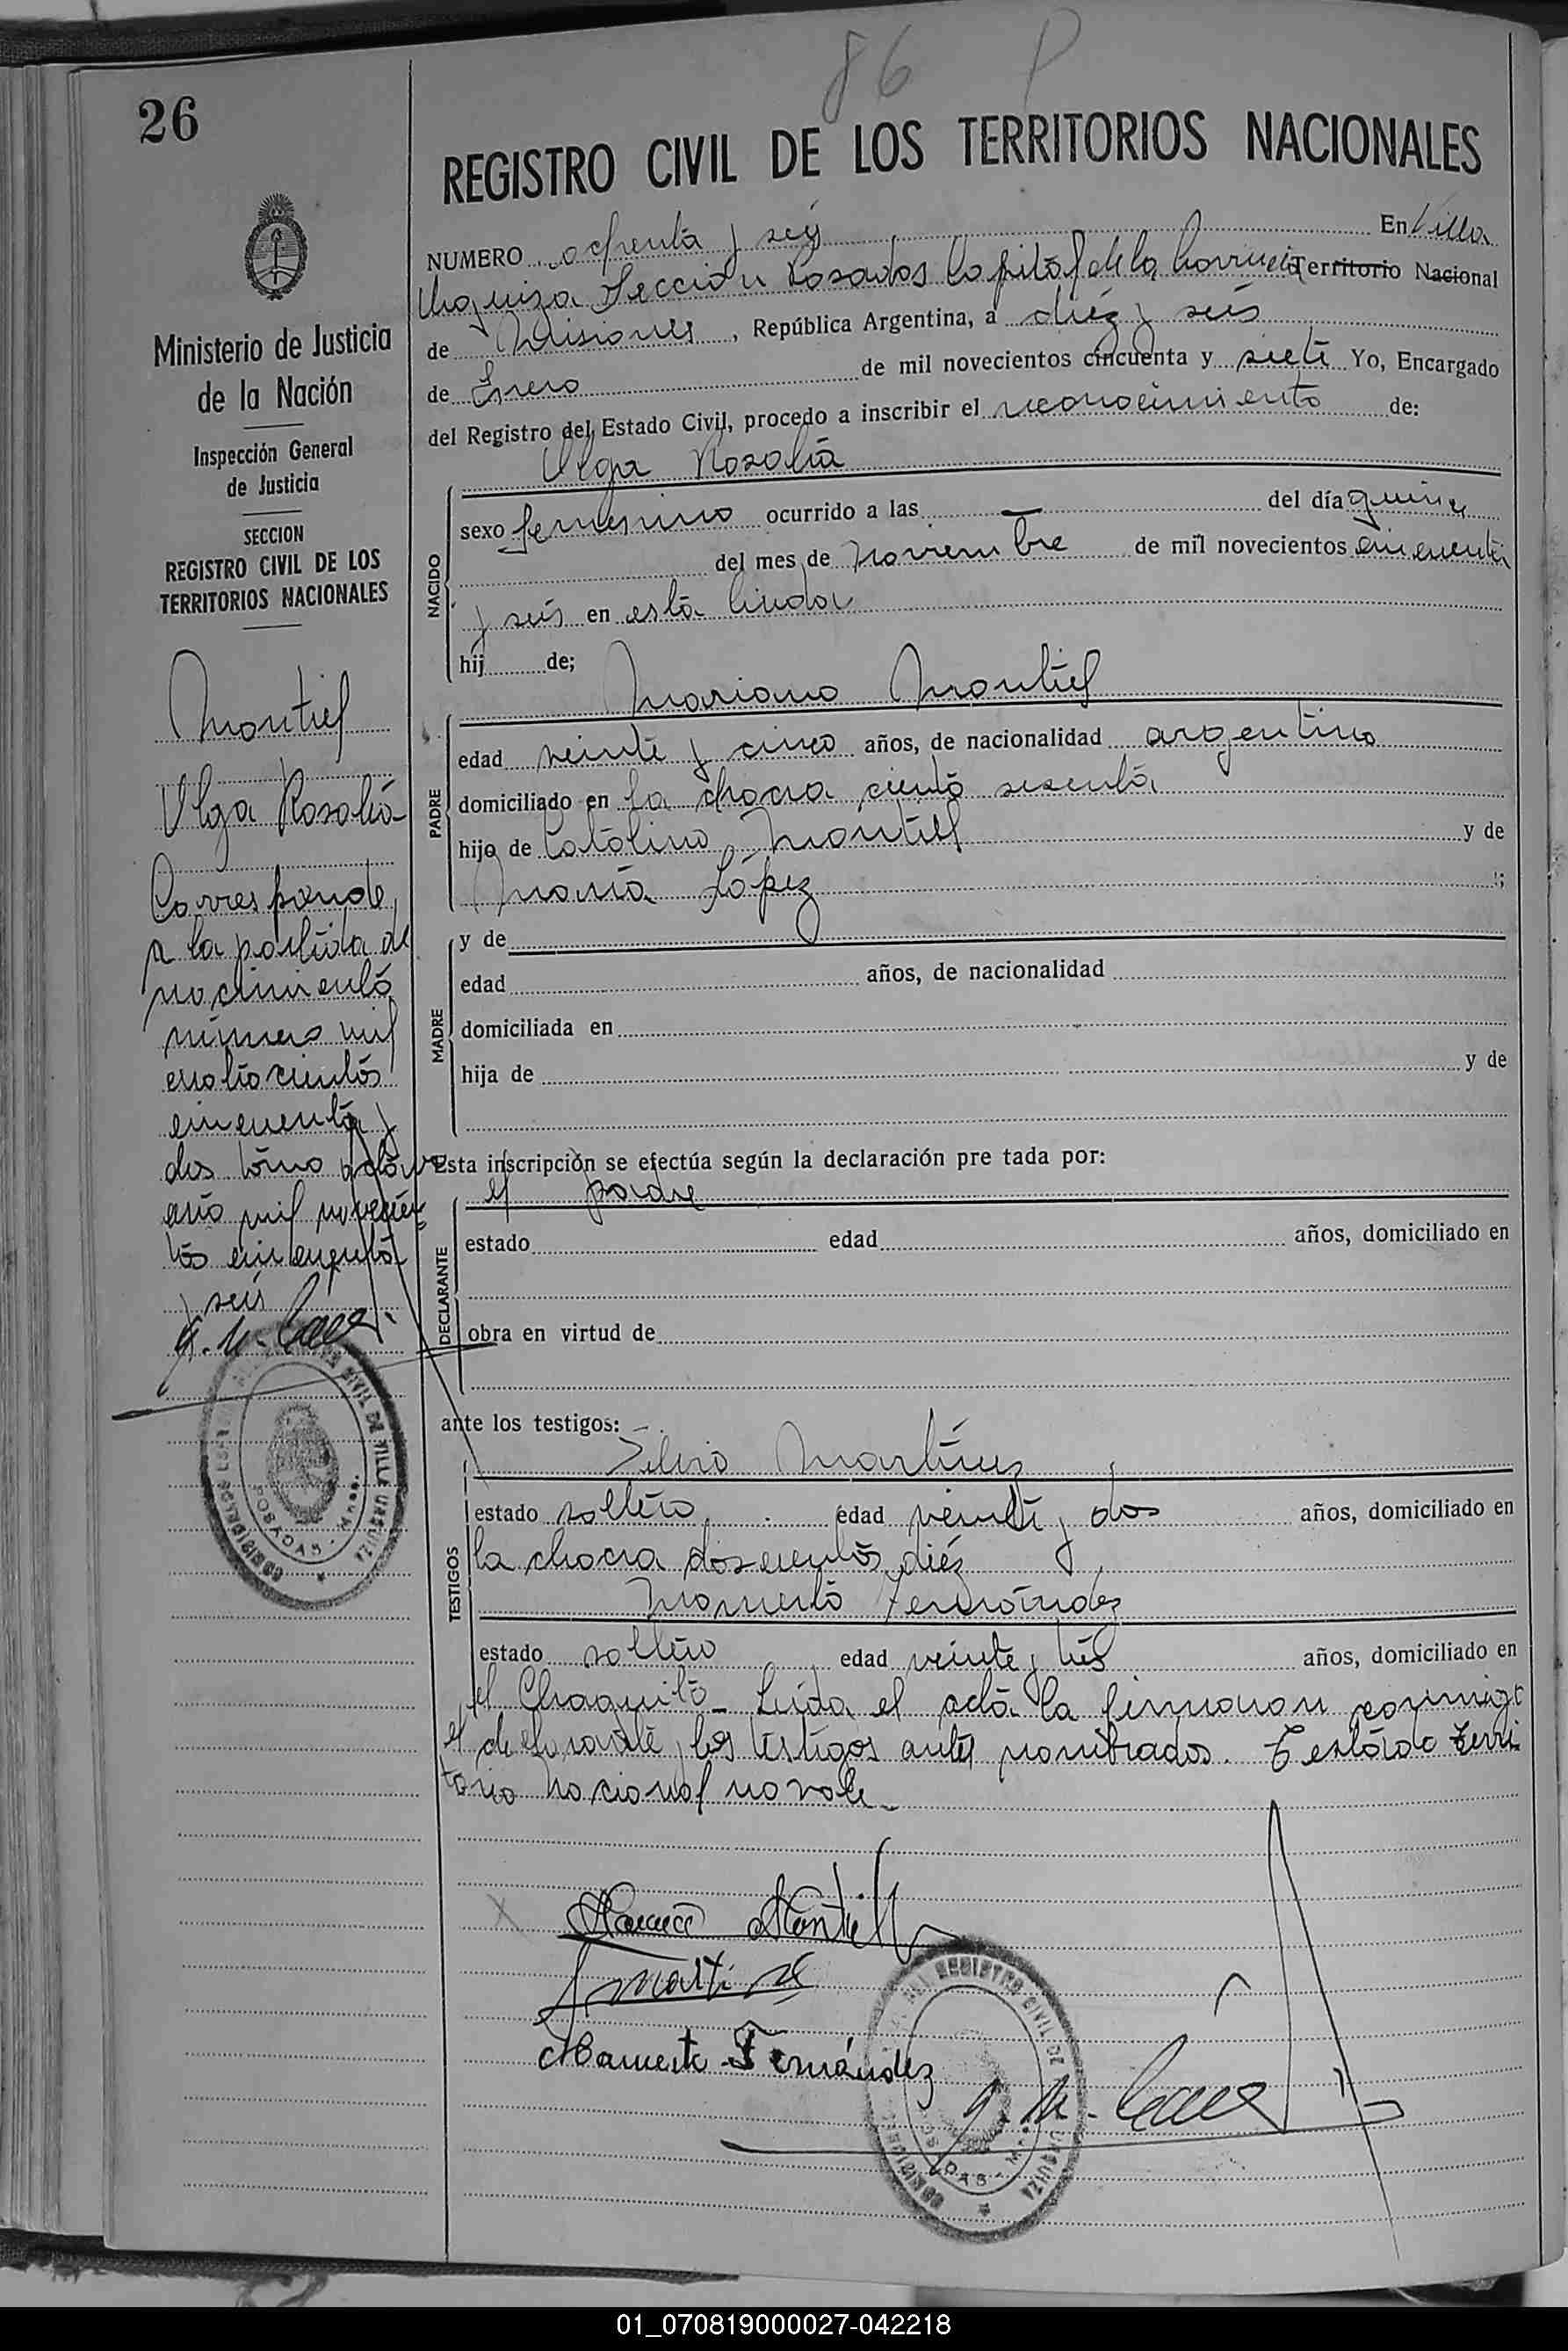 86 P
26
REGISTRO CIVIL DE LOS TERRITORIOS NACIONALES
NUMERO ochenta y seis En Villa
Urquiza Sección Posadas Capital de la Provincia Territorio Nacional
de Misiones, República Argentina, a diéz y seis
de Enero de mil novecientos cincuenta y siete Yo, Encargado
del Registro del Estado Civil, procedo a inscribir el reconocimiento de:
Olga Rosalia
NACIDO
sexo femenino ocurrido a las — del día quince
del mes de noviembre de mil novecientos cincuenta
y seis en esta ciudad
hij de;
Mariano Montiel
PADRE
edad veinte y cinco años, de nacionalidad argentino
domiciliado en la chacra ciento sesenta
hijo de Catalino Montiel y de
María López ;
MADRE
y de
edad años, de nacionalidad
domiciliada en
hija de y de
Esta inscripción se efectúa según la declaración pre tada por:
el padre
DECLARANTE
estado edad años, domiciliado en
obra en virtud de
ante los testigos:
Silvio Martínez
TESTIGOS
estado soltero edad veinte y dos años, domiciliado en
la chacra doscientos diéz
Mamerto Fernández
estado soltero edad veinte y tres años, domiciliado en
el Chaquito - Leída el acta la firmaron conmigo
el declarante y los testigos antes nombrados. Testado Terri
torio Nacional no vale.
Montiel
Martinez
Mamerto Fernández
Ministerio de Justicia
de la Nación
Inspección General
de Justicia
SECCION
REGISTRO CIVIL DE LOS
TERRITORIOS NACIONALES
Montiel
Olga Rosalia
Corresponde
a la partida de
nacimiento
número mil
cuatrocientos
cincuenta y
dos tomo octavo
año mil novecien
tos cincuenta
y seis
REGISTRO CIVIL DE VILLA URQUIZA
POSADAS - Mnes.
REGISTRO CIVIL DE VILLA URQUIZA
POSADAS - Mnes.
01_070819000027-042218